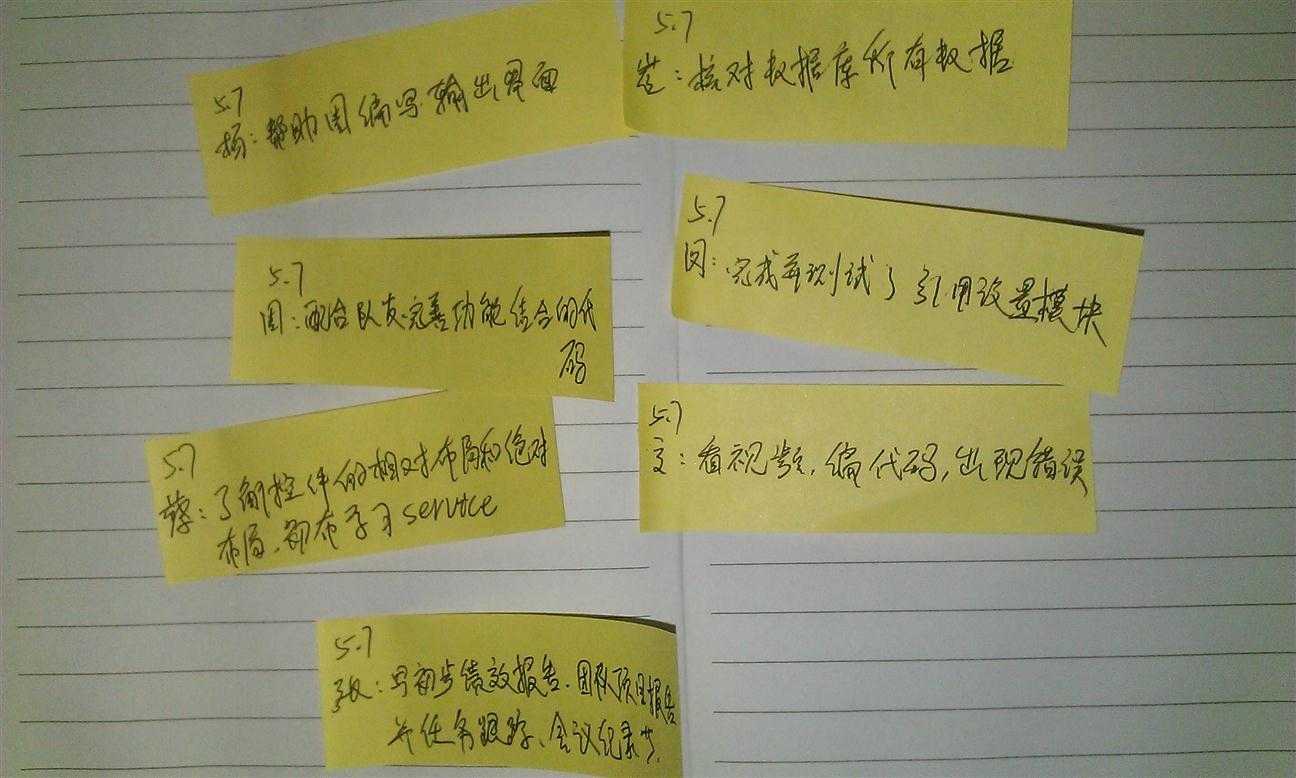 5.7
杨：帮助周编写输出界面
5.7
崔：核对数据库所有数据
5.7
周：配合队友完善功能结合的代
码
5.7
闵：完成并测试了引用设置模块
5.7
蔡：了解控件的相对布局和绝对
布局、初步学习service
5.7
文：看视频，编代码，出现错误
5.7
张：写初步绩效报告、团队项目报告
并任务跟踪、会议纪录